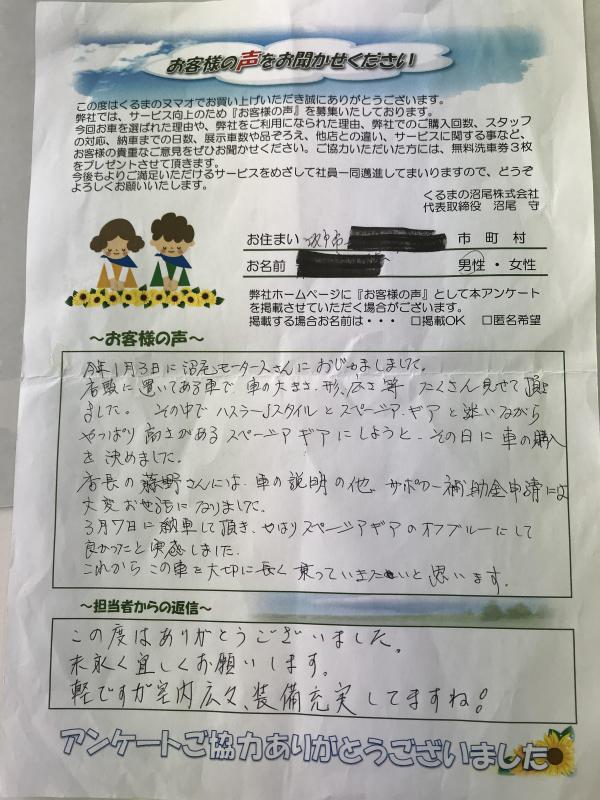 お客様の声をお聞かせください
この度はくるまのヌマオでお買い上げいただき誠にありがとうございます。
弊社では、サービス向上のため『お客様の声』を募集いたしております。
今回お車を選ばれた理由や、弊社をご利用になられた理由、弊社でのご購入回数、スタッフ
の対応、納車までの日数、展示車数や品ぞろえ、他店との違い、サービスに関する事など、
お客様の貴重なご意見をぜひお聞かせください。ご協力いただいた方には、無料洗車券3枚
をプレゼントさせて頂きます。
今後もよりご満足いただけるサービスをめざして社員一同邁進してまいりますので、どうぞ
よろしくお願いいたします。
くるまの沼尾株式会社
代表取締役 沼尾 守
お住まい 坂戸市 市 町 村
お名前 男性・女性
弊社ホームページに『お客様の声』として本アンケート
を掲載させていただく場合がございます。
掲載する場合お名前は・・・ □掲載OK □匿名希望
～お客様の声～
今年1月3日に沼尾モータースさんにおじゃましました。
店頭に置いてある車で、車の大きさ、形、広さ等 たくさん見せて頂き
ました。 その中でハスラーJスタイルとスペーシア・ギアと迷いながら
やっぱり高さがあるスペーシアギアにしようと、その日に車の購入
を決めました。
店長の藤野さんには、車の説明の他、サポカー補助金申請には
大変お世話になりました。
3月7日に納車して頂き、やはりスペーシアギアのオフブルーにして
良かったと実感しました。
これからこの車を大切に長く乗っていきたいと思います。
～担当者からの返信～
この度はありがとうございました。
末永く宜しくお願いします。
軽ですが室内広々、装備充実してますね!
アンケートご協力ありがとうございました